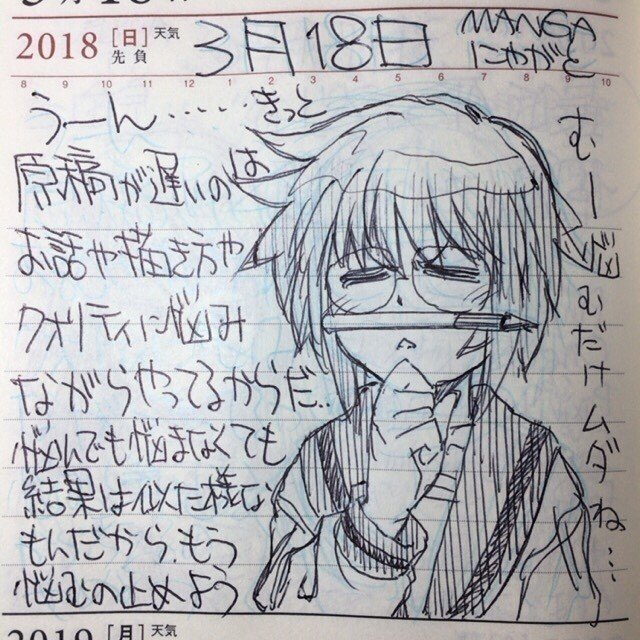 2018 [日] 天気
先負
3月18日
MANGA
にゃがと
8 9 10 11 12 1 2 3 4 5 6 7 8 9 10
うーん……きっと
原稿が遅いのは
お話や描き方や
クオリティに悩み
ながらやってるからだ..
悩んでも悩まなくても
結果は似た様な
もんだから、もう
悩むの止めよう
むー悩むだけムダね…
2019 [月] 天気